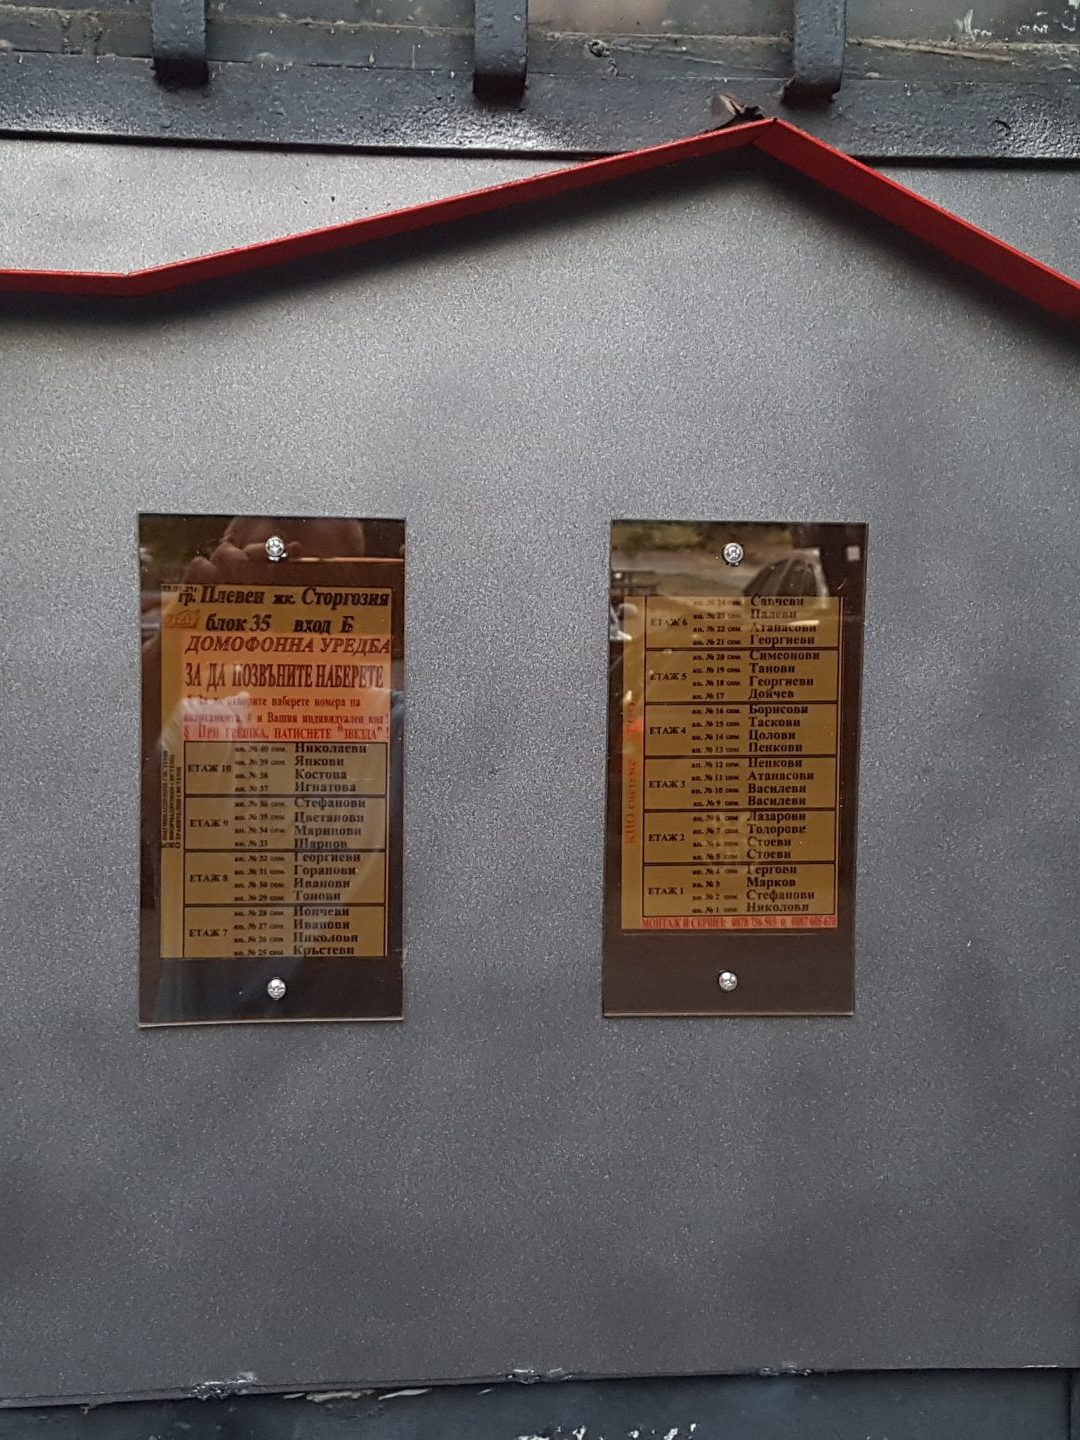 гр. Плевен жк. Сторгозия
блок 35 вход Б
ДОМОФОННА УРЕДБА
ЗА ДА ПОЗВЪНИТЕ НАБЕРЕТЕ
наберете номера на
апартамента, и Вашия индивидуален код !
ПРИ ГРЕШКА, НАТИСНЕТЕ "ЗВЕЗДА" !
ЕТАЖ 10
ап. № 40 сем. Николаеви
ап. № 39 сем. Янкови
ап. № 38 Костова
ап. № 37 Игнатова
ЕТАЖ 9
ап. № 36 сем. Стефанови
ап. № 35 сем. Цветанови
ап. № 34 сем. Маринови
ап. № 33 Шарпов
ЕТАЖ 8
ап. № 32 сем. Георгиеви
ап. № 31 сем. Горанови
ап. № 30 сем. Иванови
ап. № 29 сем. Тонови
ЕТАЖ 7
ап. № 28 сем. Йончеви
ап. № 27 сем. Иванови
ап. № 26 сем. Николови
ап. № 25 сем. Кръстеви
ЕТАЖ 6
ап. № 24 сем. Савчеви
ап. № 23 сем. Палеви
ап. № 22 сем. Атанасови
ап. № 21 сем. Георгиеви
ЕТАЖ 5
ап. № 20 сем. Симеонови
ап. № 19 сем. Танови
ап. № 18 сем. Георгиеви
ап. № 17 Дойчев
ЕТАЖ 4
ап. № 16 сем. Борисови
ап. № 15 сем. Таскови
ап. № 14 сем. Цолови
ап. № 13 сем. Пенкови
ЕТАЖ 3
ап. № 12 сем. Пенкови
ап. № 11 сем. Атанасови
ап. № 10 сем. Василеви
ап. № 9 сем. Василеви
ЕТАЖ 2
ап. № 8 сем. Лазарови
ап. № 7 сем. Тодорови
ап. № 6 сем. Стоеви
ап. № 5 сем. Стоеви
ЕТАЖ 1
ап. № 4 сем. Гергови
ап. № 3 Марков
ап. № 2 сем. Стефанови
ап. № 1 сем. Николови
МОНТАЖ И СЕРВИЗ: